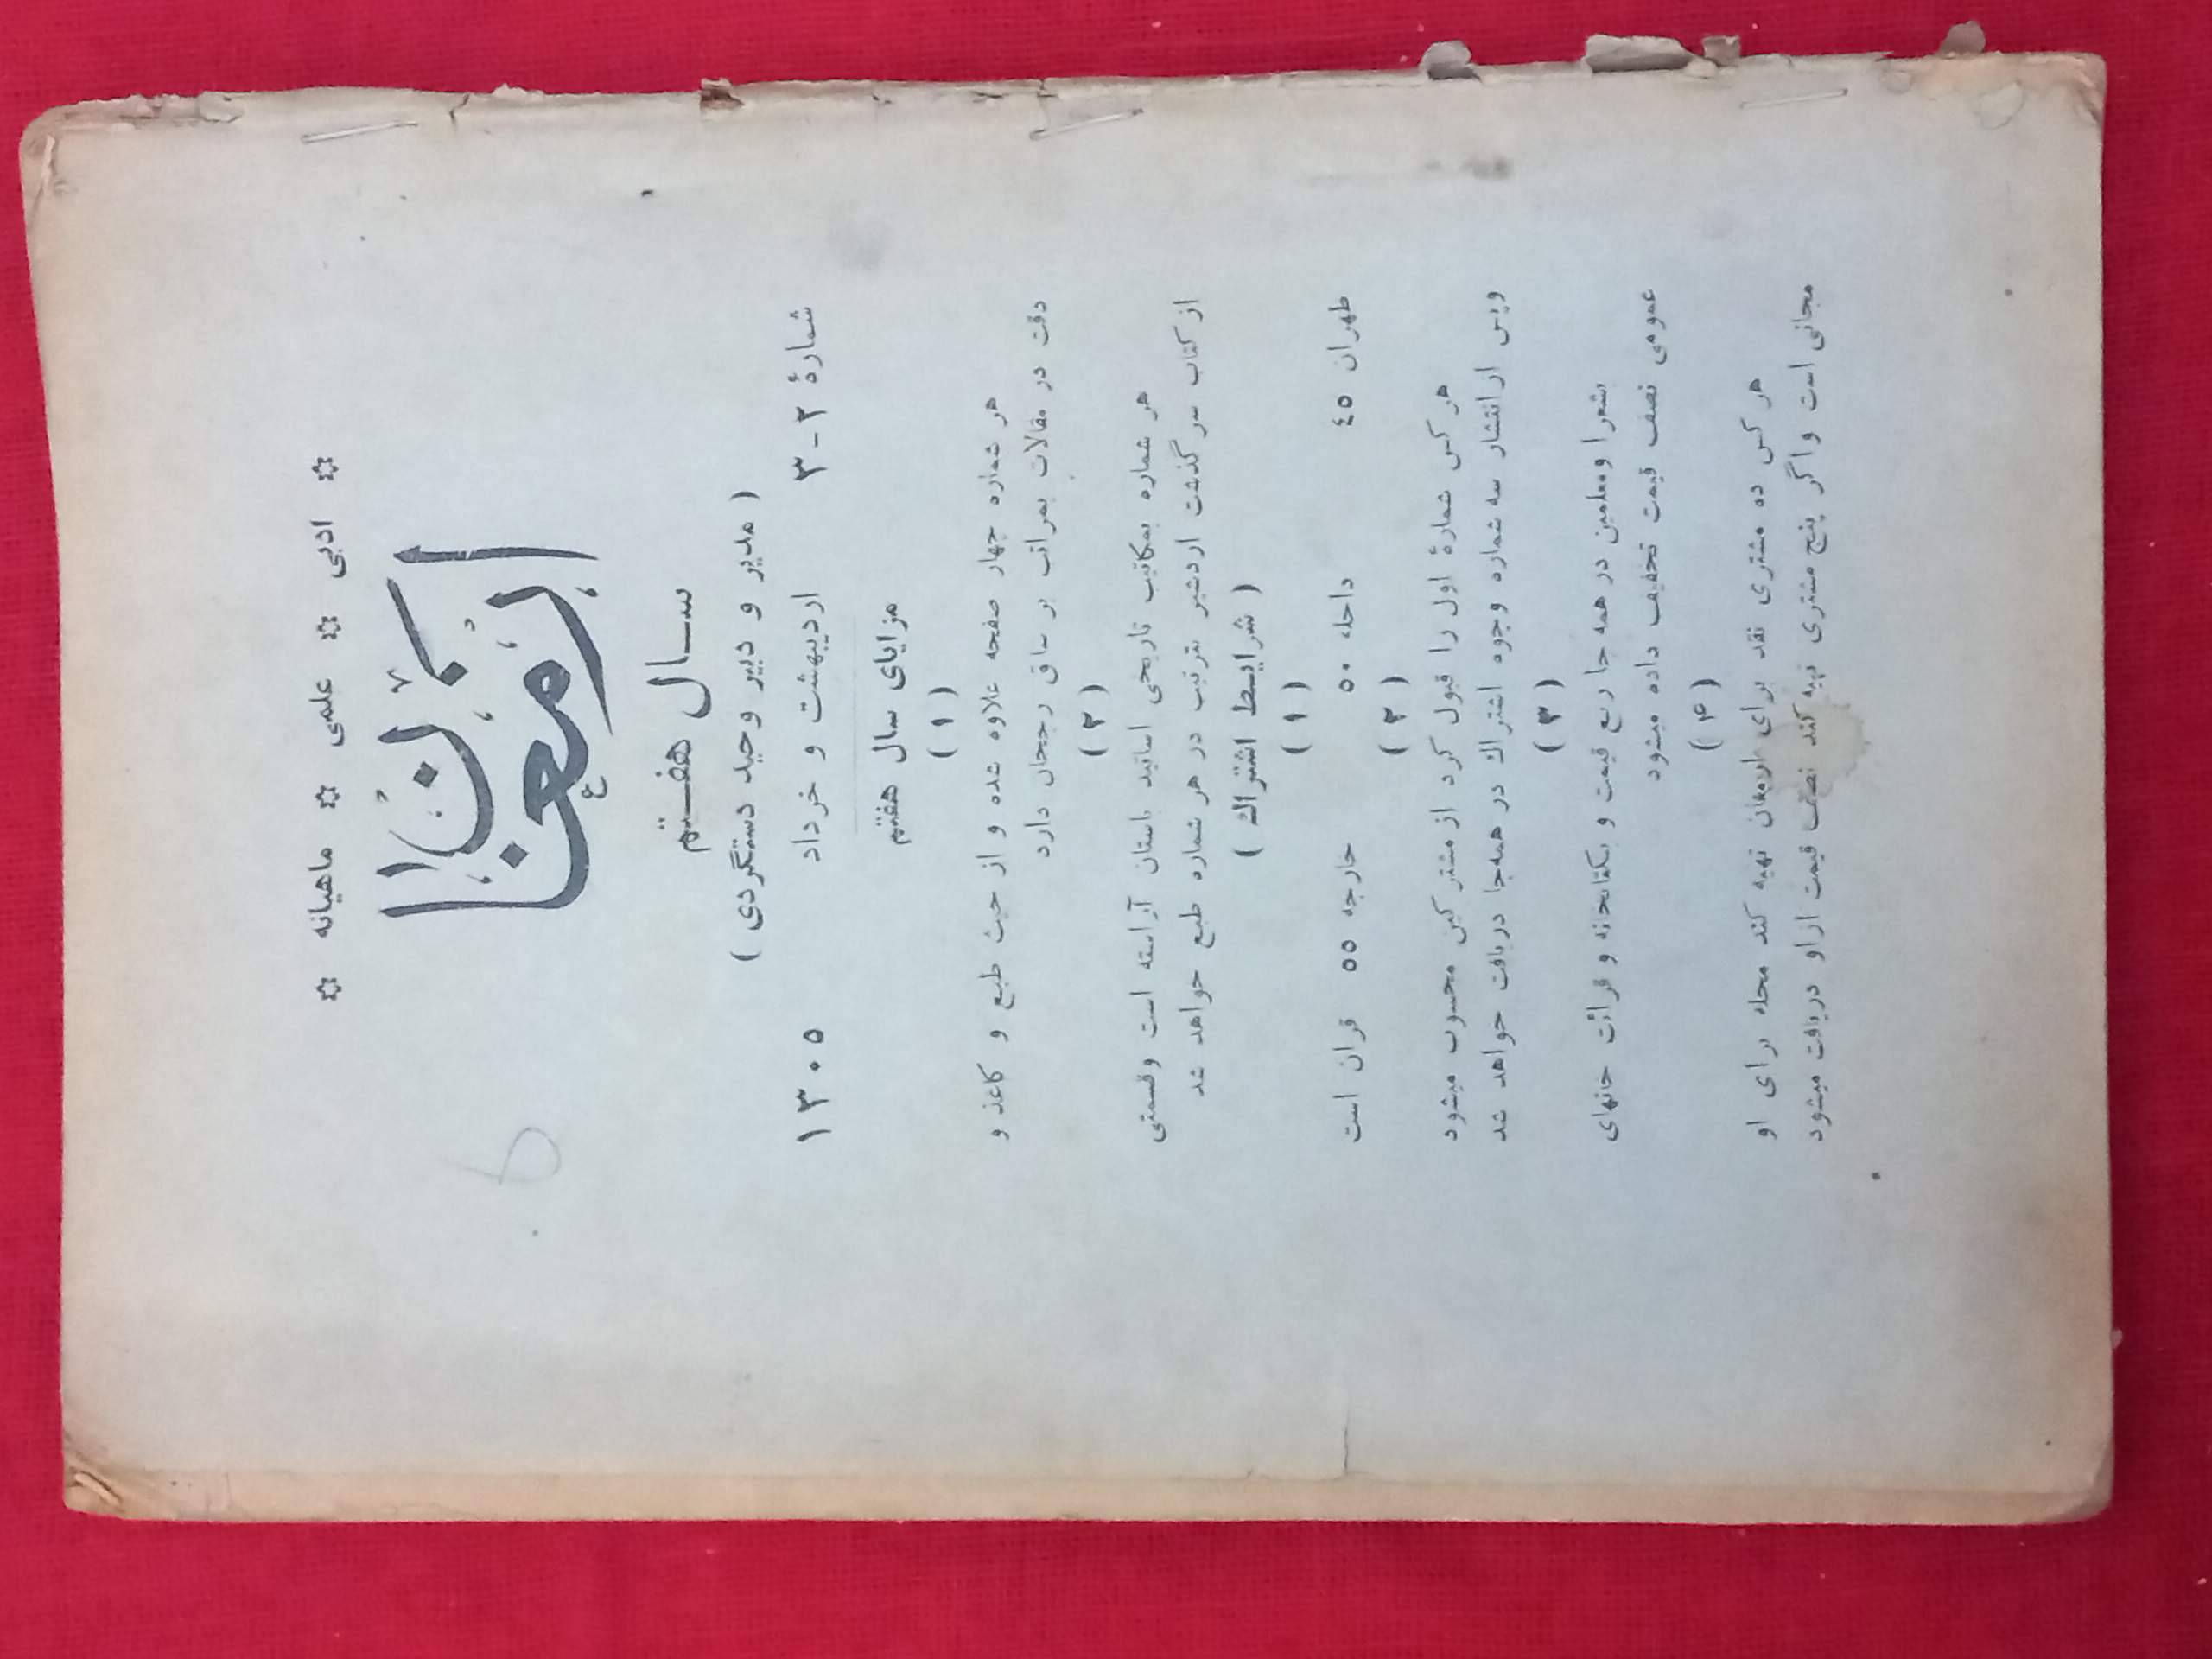 ✡ ادبی ✡ علمی ✡ ماهیانه ✡
ارمغان
سال هفتم
( مدیر و دبیر وحید دستگردی )
شمارهٔ ۲-۳ اردیبهشت و خرداد ۱۳۰۵
مزایای سال هفتم
( ۱ )
هر شماره چهار صفحه علاوه شده و از حیث طبع و کاغذ و
دقت در مقالات بمراتب بر سابق رجحان دارد
( ۲ )
هر شماره بمکاتیب تاریخی اساتید باستان آراسته است وقسمتی
از کتاب سرگذشت اردشیر بترتیب در هر شماره طبع خواهد شد
( شرایط اشتراك )
( ۱ )
طهران ٤٥ داخله ٥٠ خارجه ٥٥ قران است
( ۲ )
هر کس شمارهٔ اول را قبول کرد از مشترکین محسوب میشود
وپس ازانتشار سه شماره وجوه اشتراك در همهجا دریافت خواهد شد
( ۳ )
بشعرا ومعلمین در همه جا ربع قیمت و بکتابخانه و قرائت خانهای
عمومی نصف قیمت تخفیف داده میشود
( ۴ )
هر کس ده مشتری نقد برای ارمغان تهیه کند مجله برای او
مجانی است واگر پنج مشتری تهیه کند نصف قیمت ازاو دریافت میشود